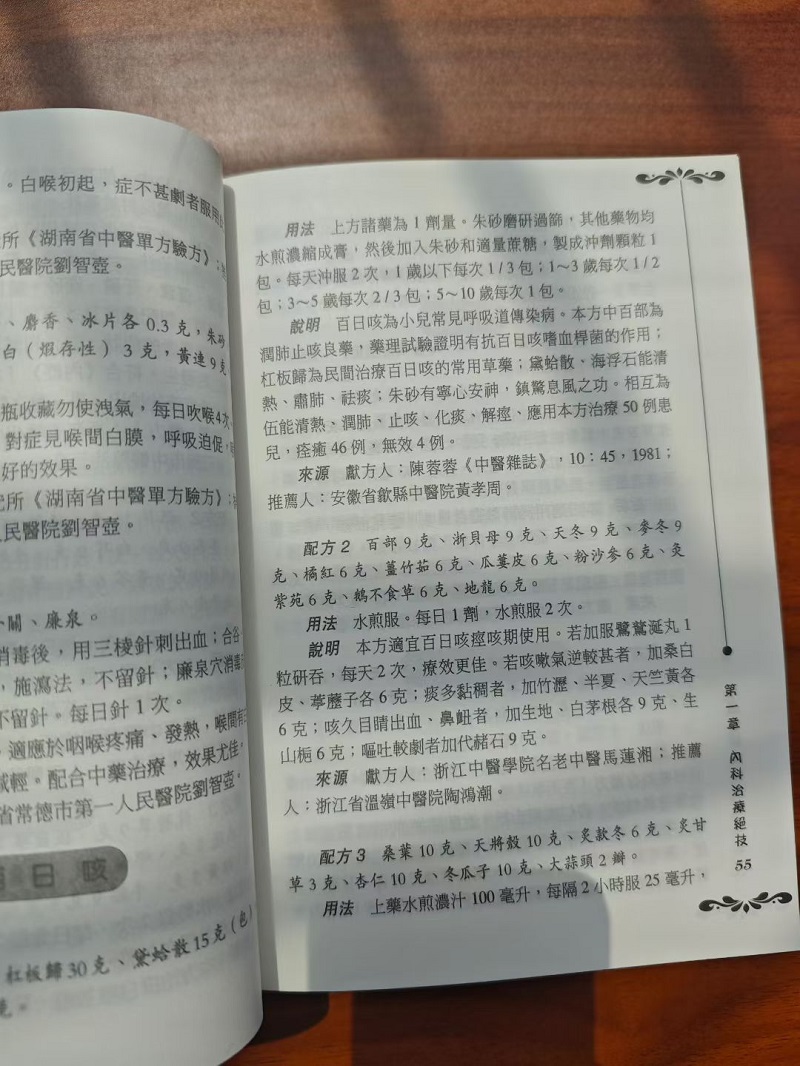 。白喉初起，症不甚劇者服用
所《湖南省中醫單方驗方》；
民醫院劉智壺。
、麝香、冰片各 0.3 克，朱砂
白（煅存性）3 克，黃連 9 克
瓶收藏勿使洩氣，每日吹喉4次
對症見喉間白膜，呼吸迫促，
好的效果。
究所《湖南省中醫單方驗方》；
人民醫院劉智壺。
關、廉泉。
消毒後，用三棱針刺出血；合谷
，施瀉法，不留針；廉泉穴消毒
不留針。每日針 1 次。
適應於咽喉疼痛、發熱，喉間有
減輕。配合中藥治療，效果尤佳。
省常德市第一人民醫院劉智壺。
日 咳
杠板歸 30 克、黛蛤散 15 克（包）
用法 上方諸藥為 1 劑量。朱砂磨研過篩，其他藥物均
水煎濃縮成膏，然後加入朱砂和適量蔗糖，製成沖劑顆粒 1
包。每天沖服 2 次，1 歲以下每次 1 / 3 包；1～3 歲每次 1 / 2
包；3～5 歲每次 2 / 3 包；5～10 歲每次 1 包。
說明 百日咳為小兒常見呼吸道傳染病。本方中百部為
潤肺止咳良藥，藥理試驗證明有抗百日咳嗜血桿菌的作用；
杠板歸為民間治療百日咳的常用草藥；黛蛤散、海浮石能清
熱、肅肺、祛痰；朱砂有寧心安神，鎮驚息風之功。相互為
伍能清熱、潤肺、止咳、化痰、解痙、應用本方治療 50 例患
兒，痊癒 46 例，無效 4 例。
來源 獻方人：陳蓉蓉《中醫雜誌》，10：45，1981；
推薦人：安徽省歙縣中醫院黃孝周。
配方 2 百部 9 克、浙貝母 9 克、天冬 9 克、麥冬 9
克、橘紅 6 克、薑竹茹 6 克、瓜蔞皮 6 克、粉沙參 6 克、炙
紫菀 6 克、鵝不食草 6 克、地龍 6 克。
用法 水煎服。每日 1 劑，水煎服 2 次。
說明 本方適宜百日咳痙咳期使用。若加服鷺鶿涎丸 1
粒研吞，每天 2 次，療效更佳。若咳嗽氣逆較甚者，加桑白
皮、葶藶子各 6 克；痰多黏稠者，加竹瀝、半夏、天竺黃各
6 克；咳久目睛出血、鼻衄者，加生地、白茅根各 9 克、生
山梔 6 克；嘔吐較劇者加代赭石 9 克。
來源 獻方人：浙江中醫學院名老中醫馬蓮湘；推薦
人：浙江省溫嶺中醫院陶鴻潮。
配方 3 桑葉 10 克、天將殼 10 克、炙款冬 6 克、炙甘
草 3 克、杏仁 10 克、冬瓜子 10 克、大蒜頭 2 瓣。
用法 上藥水煎濃汁 100 毫升，每隔 2 小時服 25 毫升，
第一章 內科治療絕技
55